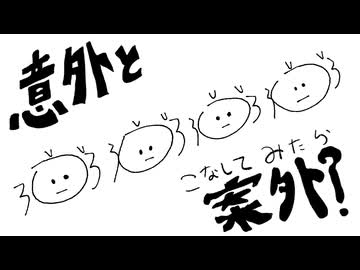 意外と
こなしてみたら
案外?